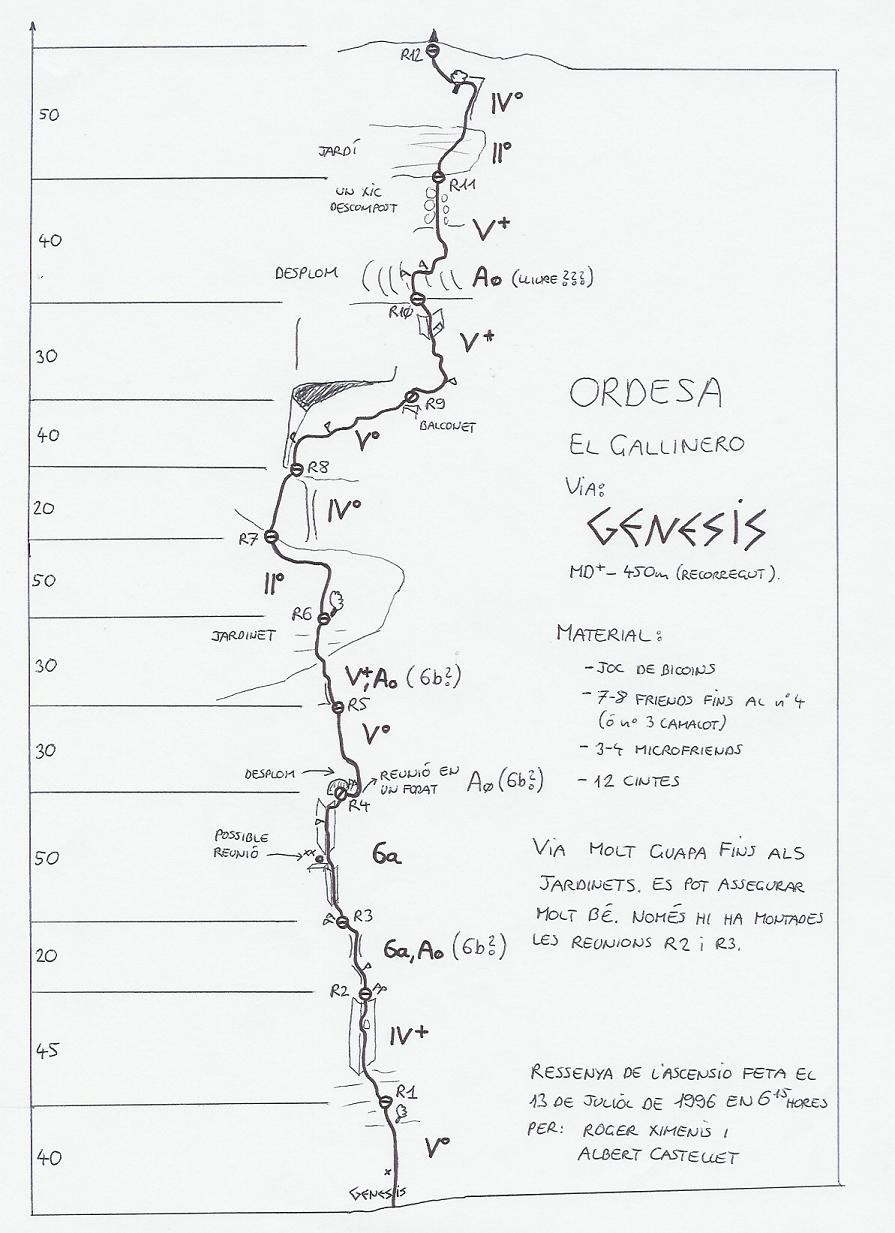 R12
IVº
50
JARDÍ
IIº
R11
UN XIC
DESCOMPOST
V+
40
DESPLOM
AØ (LLIURE???)
R1Ø
V+
30
R9
BALCONET
40
Vº
R8
20
IVº
R7
50
IIº
R6
JARDINET
30
V+, A0 (6b?)
R5
Vº
30
DESPLOM
REUNIÓ EN
UN FORAT
AØ (6b?)
R4
POSSIBLE
REUNIÓ
xx
50
6a
R3
20
6a, A0 (6b?)
R2
IV+
45
R1
Vº
40
x
GENESIS
ORDESA
EL GALLINERO
VIA:
GENESIS
MD+ - 450m (RECORREGUT).
MATERIAL:
- JOC DE BICOINS
- 7-8 FRIENDS FINS AL nº 4
(ó nº 3 CAMALOT)
- 3-4 MICROFRIENDS
- 12 CINTES
VIA MOLT GUAPA FINS ALS
JARDINETS. ES POT ASSEGURAR
MOLT BÉ. NOMÉS HI HA MONTADES
LES REUNIONS R2 i R3.
RESSENYA DE L'ASCENSIO FETA EL
13 DE JULIÒL DE 1996 EN 6 15 HORES
PER: ROGER XIMENIS I
ALBERT CASTELLET